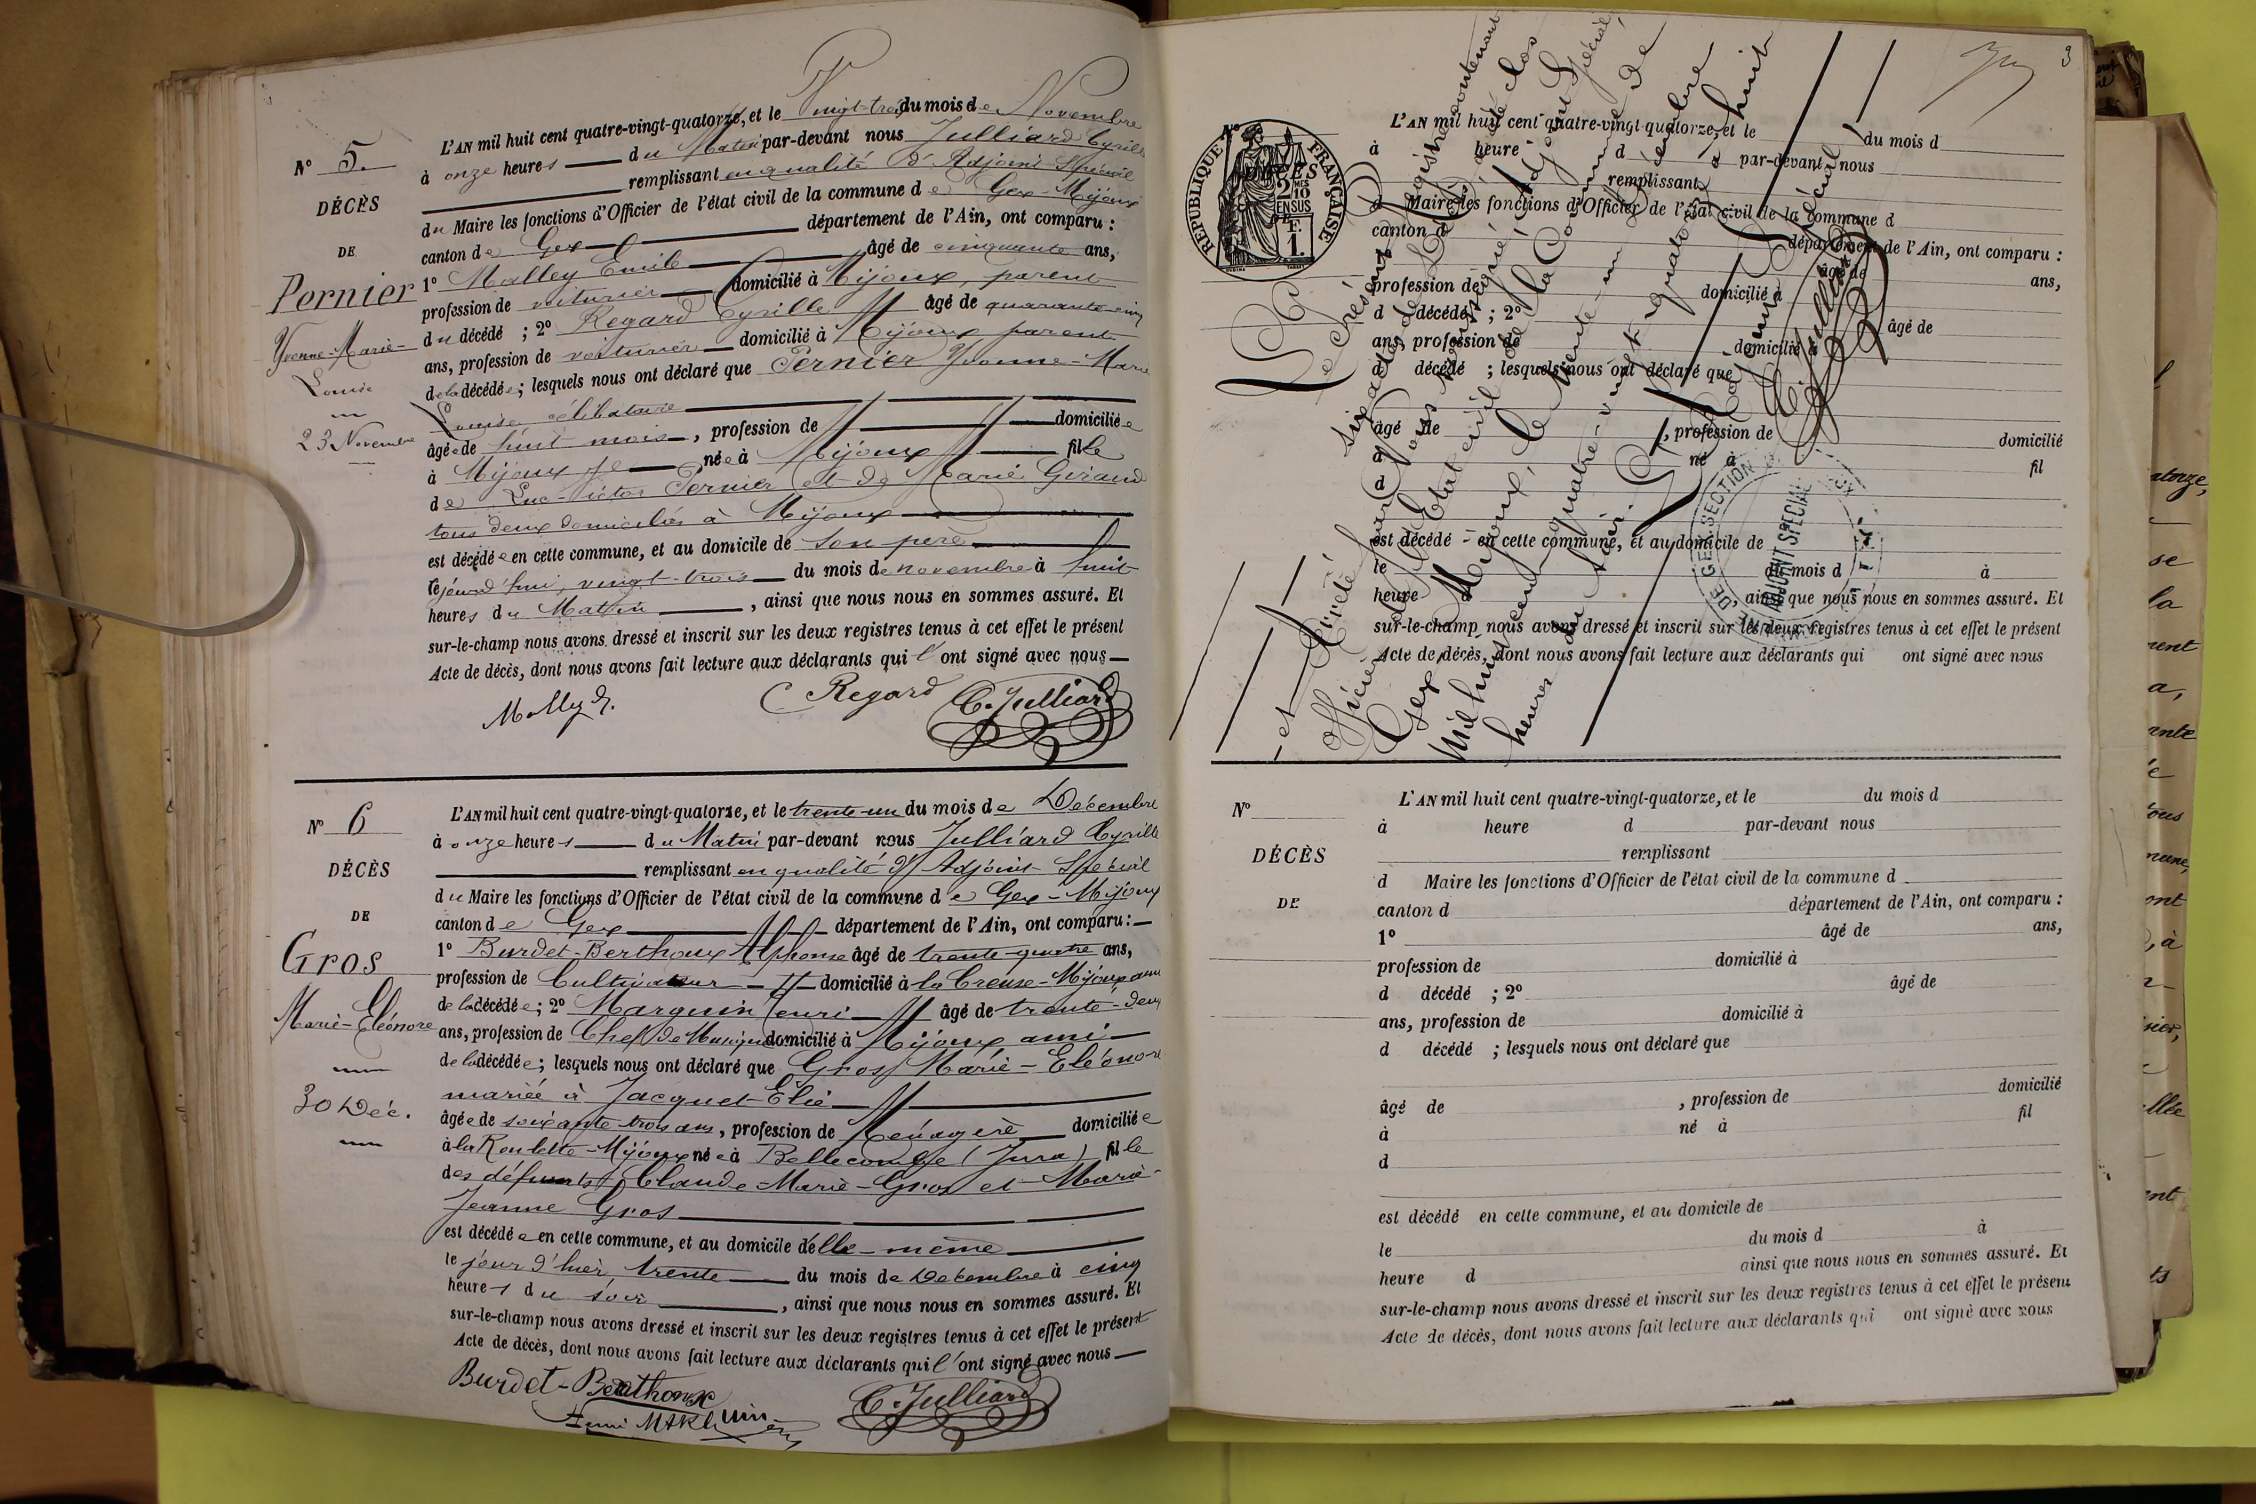 N° 5.
DÉCÈS
DE
Pernier
Yvonne-Marie-
Louise
23 Novembre
L'AN mil huit cent quatre-vingt-quatorze, et le Vingt-trois du mois de Novembre
à onze heures du Matin par-devant nous Julliard Cyrille
remplissant en qualité d'Adjoint Spécial
du Maire les fonctions d'Officier de l'état civil de la commune de Gex-Mijoux
canton de Gex département de l'Ain, ont comparu :
1° Malley Emile âgé de cinquante ans,
profession de voiturier domicilié à Mijoux, parent
du décédé ; 2° Regard Cyrille âgé de quarante-cinq
ans, profession de voiturier domicilié à Mijoux parent
de la décédée ; lesquels nous ont déclaré que Pernier Yvonne-Marie
Louise célibataire
âgée de huit mois, profession de domiciliée
à Mijoux née à Mijoux fille
de Luc-Victor Pernier et de Marie Giraud
tous deux domiciliés à Mijoux
est décédée en cette commune, et au domicile de son père
le jourd'hui vingt-trois du mois de novembre à huit
heures du Matin, ainsi que nous nous en sommes assuré. Et
sur-le-champ nous avons dressé et inscrit sur les deux registres tenus à cet effet le présent
Acte de décès, dont nous avons fait lecture aux déclarants qui l'ont signé avec nous
C Regard C. Julliard
N° 6
DÉCÈS
DE
Gros
Marie-Eléonore
30 Déc.
L'AN mil huit cent quatre-vingt-quatorze, et le trente-un du mois de Décembre
à onze heures du Matin par-devant nous Julliard Cyrille
remplissant en qualité d'Adjoint Spécial
du Maire les fonctions d'Officier de l'état civil de la commune de Gex-Mijoux
canton de Gex département de l'Ain, ont comparu :
1° Burdet-Berthoux Alphonse âgé de trente-quatre ans,
profession de Cultivateur domicilié à la Creuse-Mijoux ami
de la décédée ; 2° Marguin Henri âgé de trente-deux
ans, profession de Chef de Musique domicilié à Mijoux ami
de la décédée ; lesquels nous ont déclaré que Gros Marie-Eléonore
mariée à Jacquet Elie
âgée de soixante trois ans, profession de Ménagère domiciliée
à la Roulette-Mijoux née à Bellecombe (Jura) fille
des défunts Claude-Marie-Gros et Marie-
Jeanne Gros
est décédée en cette commune, et au domicile d'elle-même
le jour d'hier trente du mois de Décembre à cinq
heures du soir, ainsi que nous nous en sommes assuré. Et
sur-le-champ nous avons dressé et inscrit sur les deux registres tenus à cet effet le présent
Acte de décès, dont nous avons fait lecture aux déclarants qui l'ont signé avec nous
Burdet-Berthoux C. Julliard
3
RÉPUBLIQUE FRANÇAISE
2 MES
10
EN SUS
1 F.
Le Présent Registre contenant
six actes de Décès, a été clos
et Arrêté par Nous soussigné, Adjoint Spécial,
officier de l'Etat civil de la Commune de
Gex, Mijoux, le trente-un Décembre
mil huit cent quatre-vingt-quatorze, à huit
heures du soir.
L'Adjoint Spécial
C. Julliard
ADJOINT SPÉCIAL
SECTION
L'AN mil huit cent quatre-vingt-quatorze, et le du mois d
à heure d par-devant nous
remplissant
d Maire les fonctions d'Officier de l'état civil de la commune d
canton d département de l'Ain, ont comparu :
âgé de ans,
profession de domicilié à
d décédé ; 2° âgé de
ans, profession de domicilié à
d décédé ; lesquels nous ont déclaré que
âgé de , profession de domicilié
à né à fil
d
est décédé en cette commune, et au domicile de
le du mois d à
heure d , ainsi que nous nous en sommes assuré. Et
sur-le-champ nous avons dressé et inscrit sur les deux registres tenus à cet effet le présent
Acte de décès, dont nous avons fait lecture aux déclarants qui ont signé avec nous
N°
DÉCÈS
DE
L'AN mil huit cent quatre-vingt-quatorze, et le du mois d
à heure d par-devant nous
remplissant
d Maire les fonctions d'Officier de l'état civil de la commune d
canton d département de l'Ain, ont comparu :
1° âgé de ans,
profession de domicilié à
d décédé ; 2° âgé de
ans, profession de domicilié à
d décédé ; lesquels nous ont déclaré que
âgé de , profession de domicilié
à né à fil
d
est décédé en cette commune, et au domicile de
le du mois d à
heure d ainsi que nous nous en sommes assuré. Et
sur-le-champ nous avons dressé et inscrit sur les deux registres tenus à cet effet le présent
Acte de décès, dont nous avons fait lecture aux déclarants qui ont signé avec nous